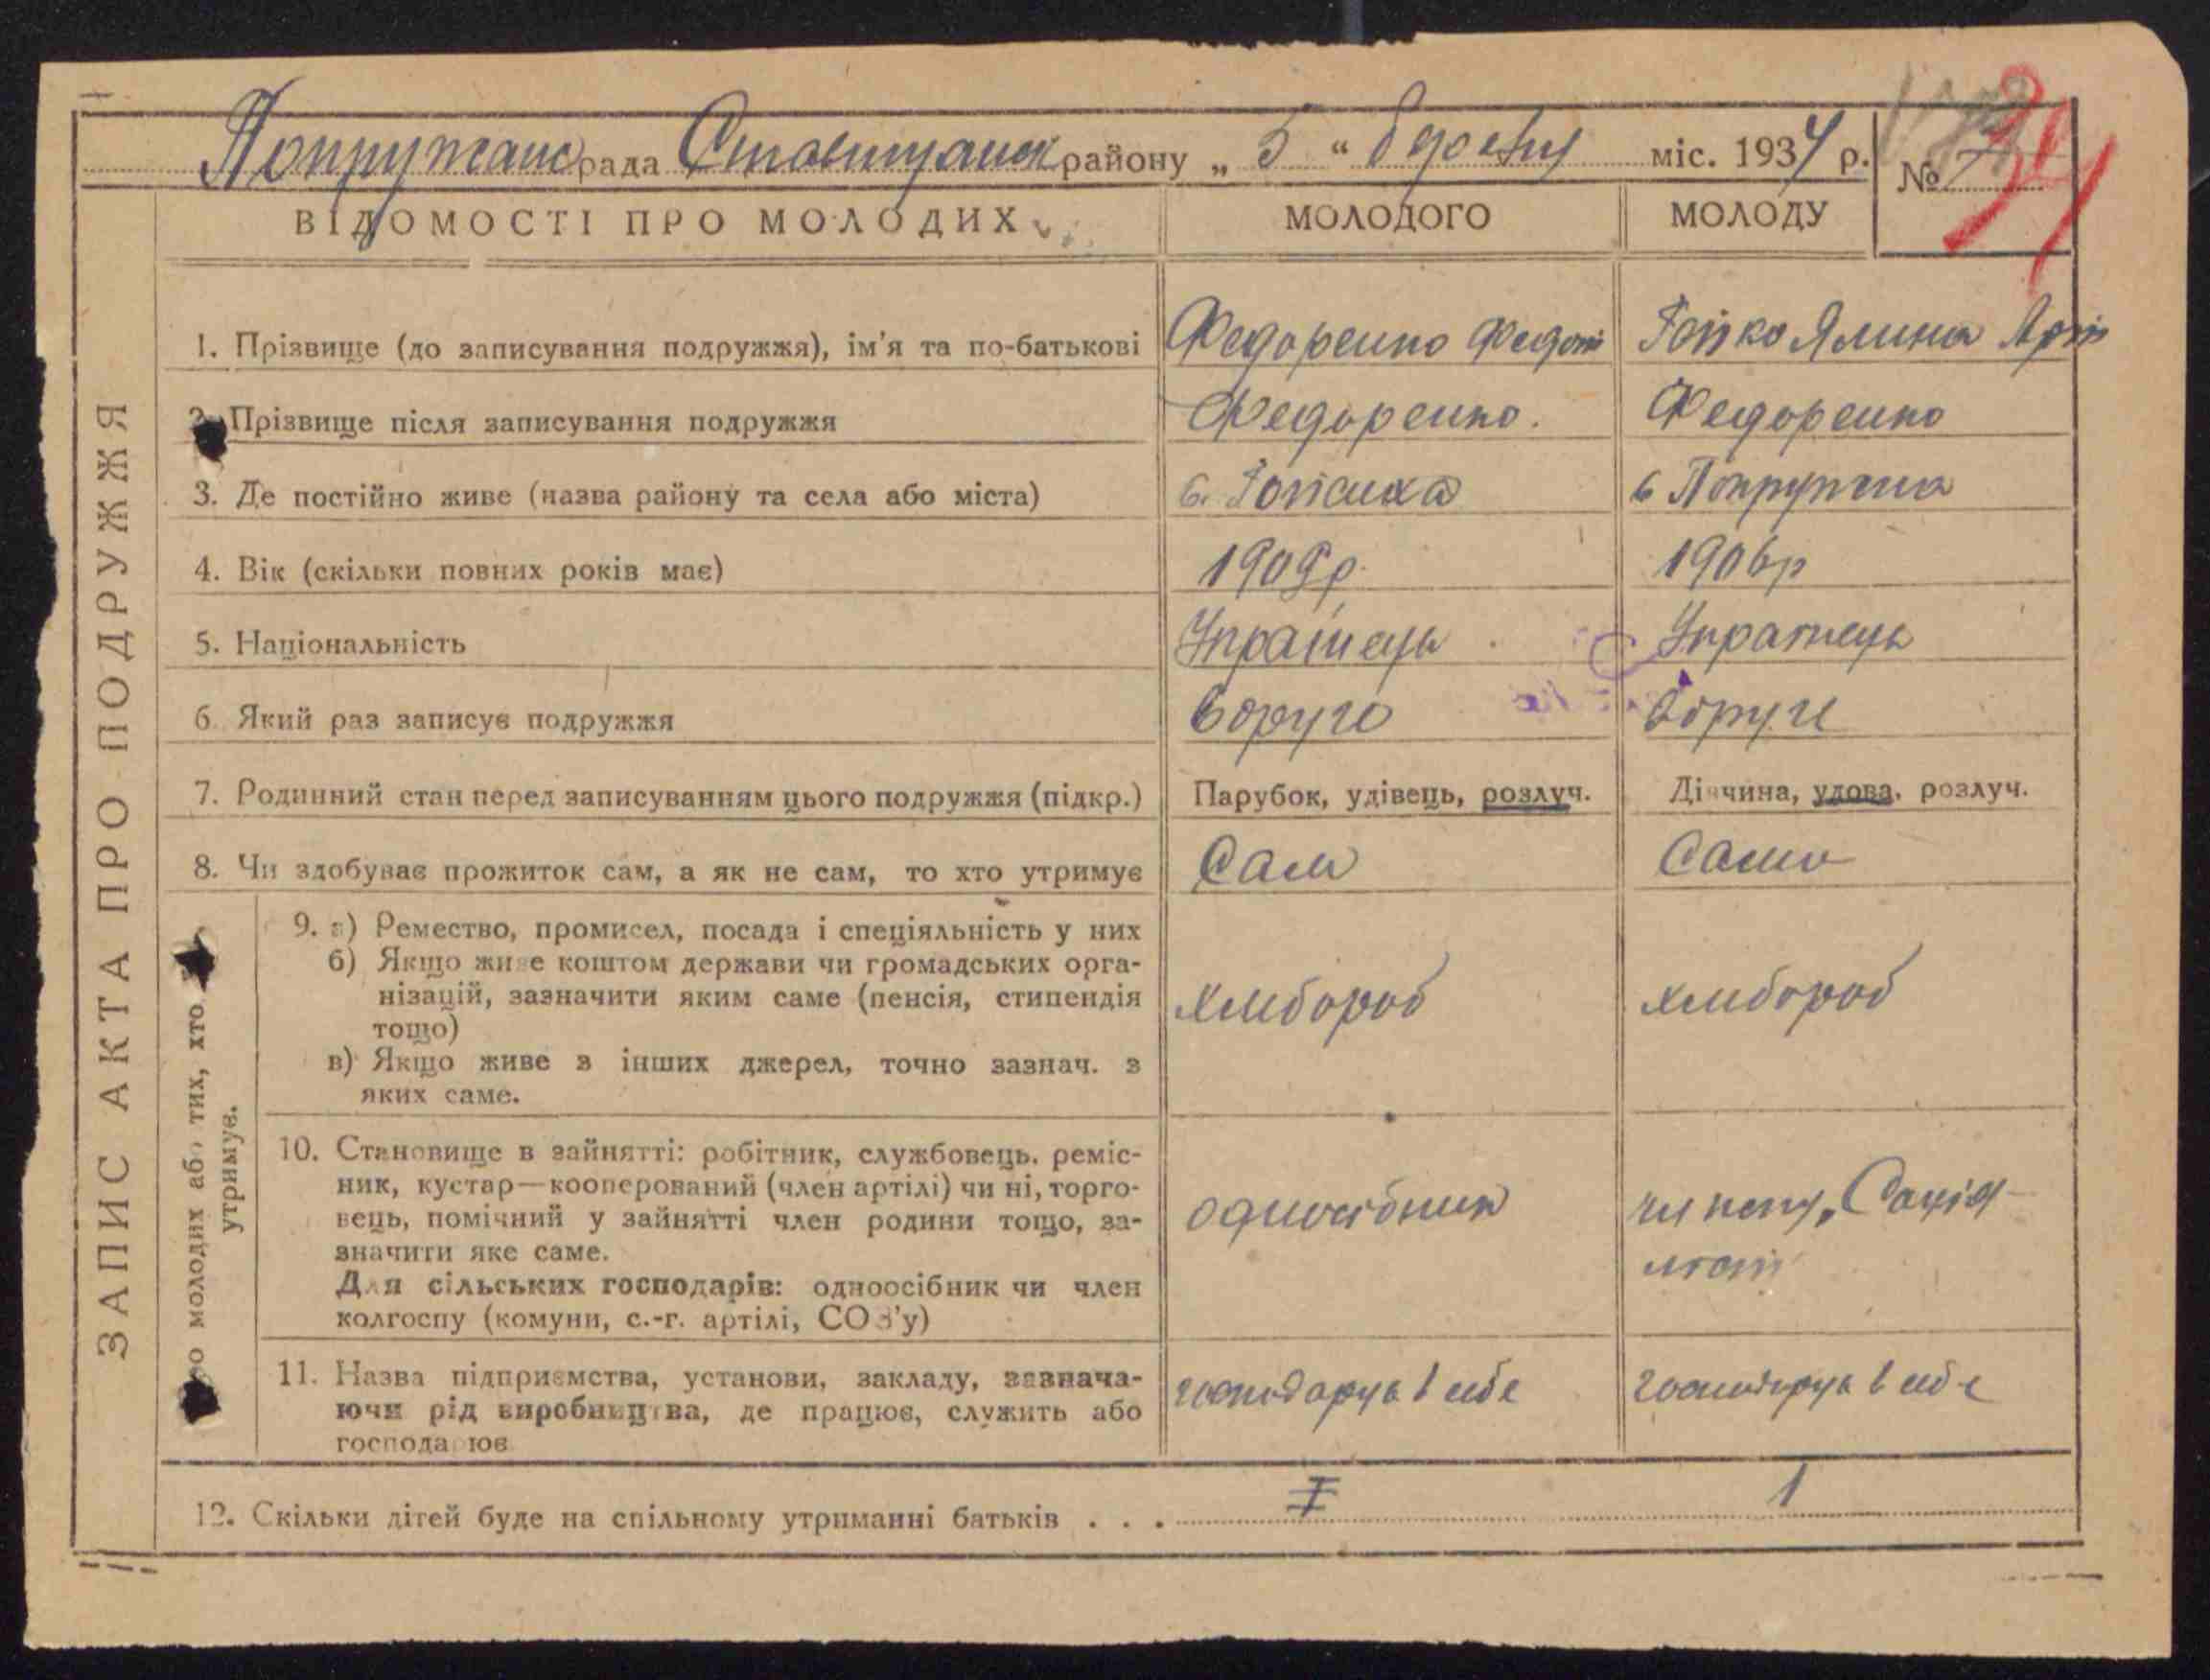 Попружанс рада Ставищанськ району „ 5 “ міс. 1934 р. № 7
ВІДОМОСТІ ПРО МОЛОДИХ МОЛОДОГО МОЛОДУ
ЗАПИС АКТА ПРО ПОДРУЖЖЯ
1. Прізвище (до записування подружжя), ім'я та по-батькові Федоренко Федот Гойко Ялина
2. Прізвище після записування подружжя Федоренко. Федоренко
3. Де постійно живе (назва району та села або міста) с. с Попружна
4. Вік (скільки повних років має) 1909р 1906р
5. Національність Українець Українець
6 Який раз записує подружжя вдруге вдруге
7. Родинний стан перед записуванням цього подружжя (підкр.) Парубок, удівець, розлуч. Дівчина, удова, розлуч.
8. Чи здобуває прожиток сам, а як не сам, то хто утримує Сам Сама
Про молодих або тих, хто утримує.
9. а) Ремество, промисел, посада і спеціяльність у них
б) Якщо живе коштом держави чи громадських орга-
нізацій, зазначити яким саме (пенсія, стипендія
тощо)
в) Якщо живе з інших джерел, точно зазнач. з
яких саме.
хлибороб хлибороб
10. Становище в зайнятті: робітник, службовець, реміс-
ник, кустар—кооперований (член артілі) чи ні, торго-
вець, помічний у зайнятті член родини тощо, за-
значити яке саме.
Для сільських господарів: одноосібник чи член
колгоспу (комуни, с.-г. артілі, СОЗ'у)
одноосібник
11. Назва підприємства, установи, закладу, зазнача-
ючи рід виробництва, де працює, служить або
господарює
господарує в себе господарує в себе
12. Скільки дітей буде на спільному утриманні батьків . . . I 1